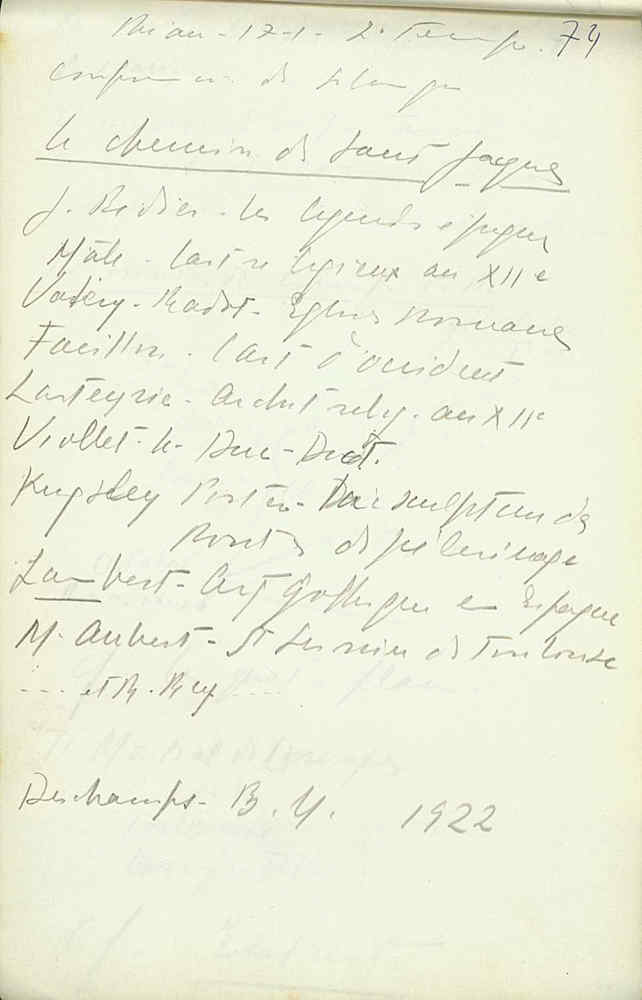 74
de
le chemin de Saint Jacques
J. Bédier - les légendes épiques
Mâle - l'art religieux au XIIe
Vallery - Radot - Eglises Romanes
Focillon - l'art d'occident
Lasteyrie - Archit relig. au XIIe
Viollet - le Duc - Dict.
Kingsley Porter - sculpture des
Routes de pèlerinage
Lambert - l'art Gothique en Espagne
M. Aubert - St Sernin de Toulouse
.... et R. Rey ....
Deschamps - B. M. 1922